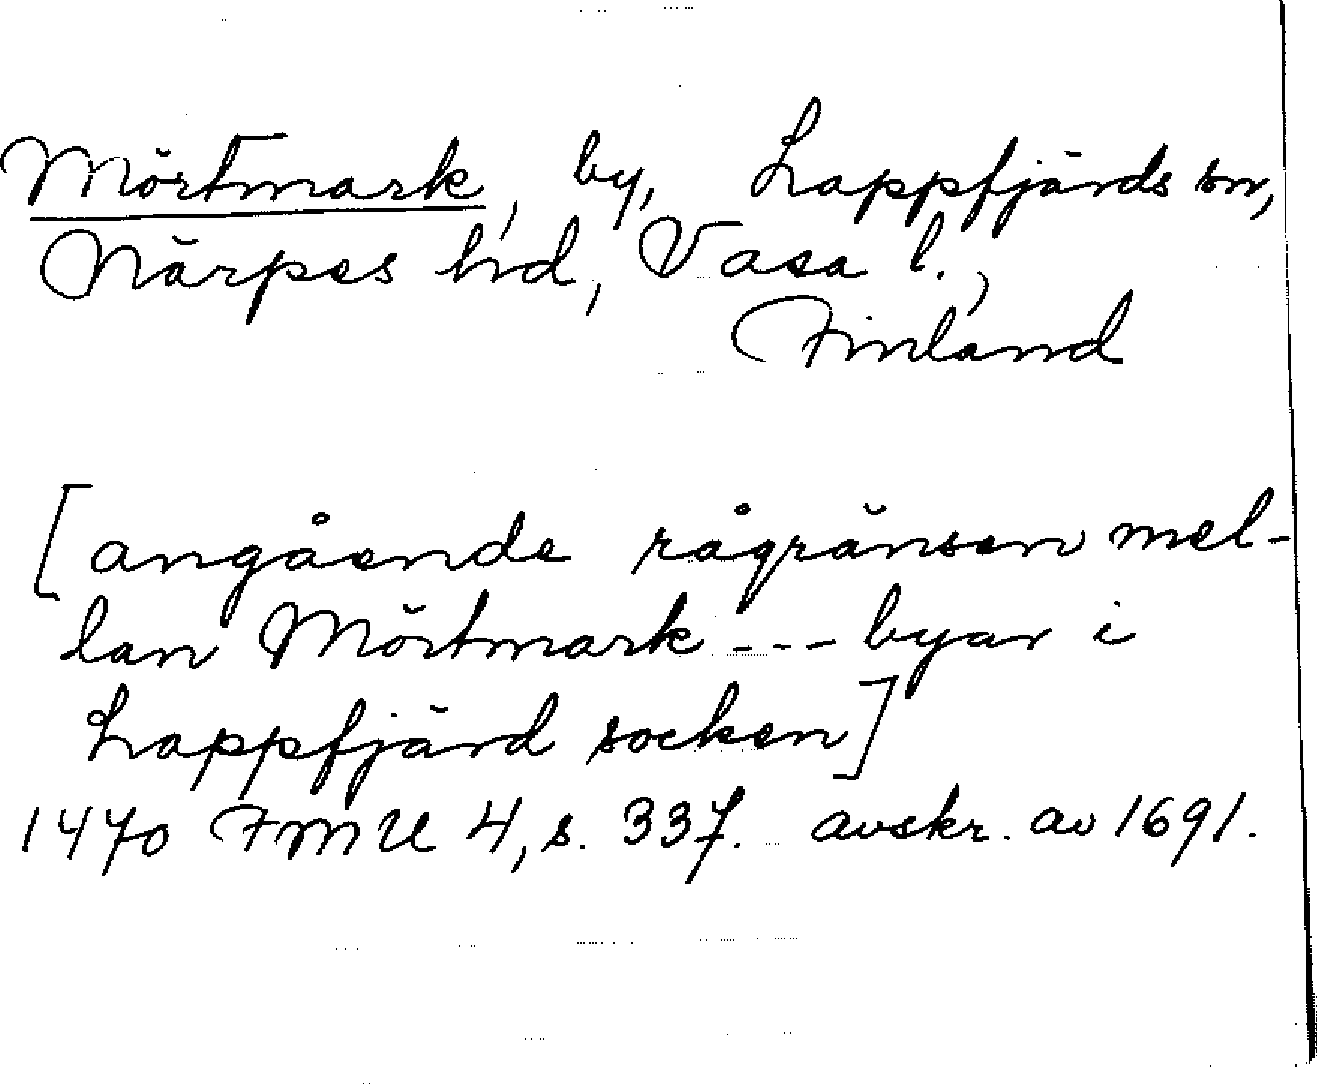 Mörtmark, by, Lappfjärds sn,
Närpes hd, Vasa l.,
Finland
[angående rågränsen mel-
lan Mörtmark --- byar i
Lappfjärd socken]
1470 FMU 4, s. 337. avskr. av 1691.